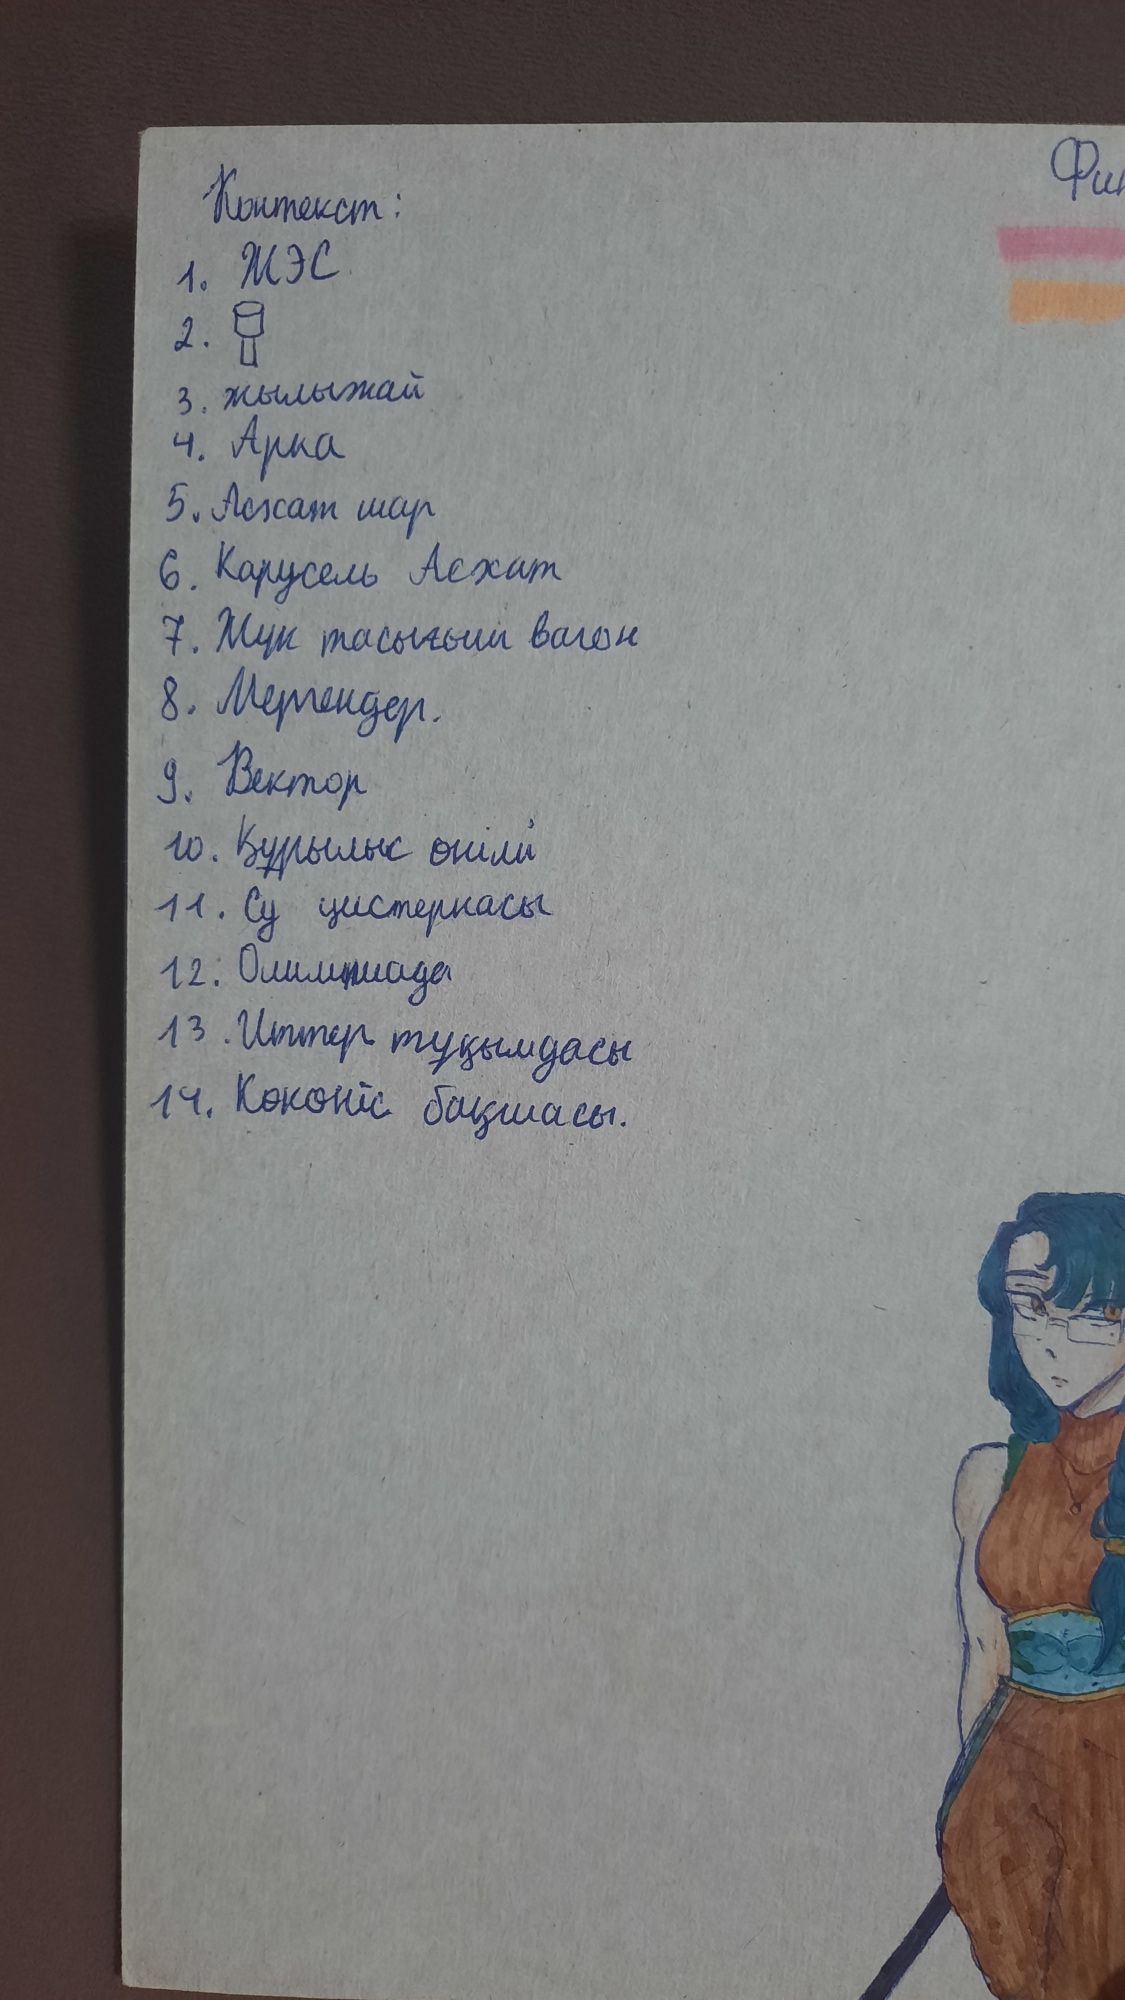 Контекст:
1. ЖЭС
2.
3. жылыжай
4. Арка
5. Асхат шар
6. Карусель Асхат
7. Жүк тасығыш вагон
8. Мергендер.
9. Вектор
10. Құрылыс өнімі
11. Су цистернасы
12. Олимпиада
13. Иттер тұқымдасы
14. Көкөніс бақшасы.